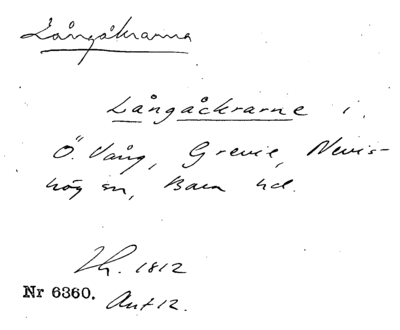 Långåkrarna
Långåckrarne i
Ö. Vång, Grevie, Nevis-
hög sn, Bara hd.
Lh. 1812
Nr 6360. Akt 12.